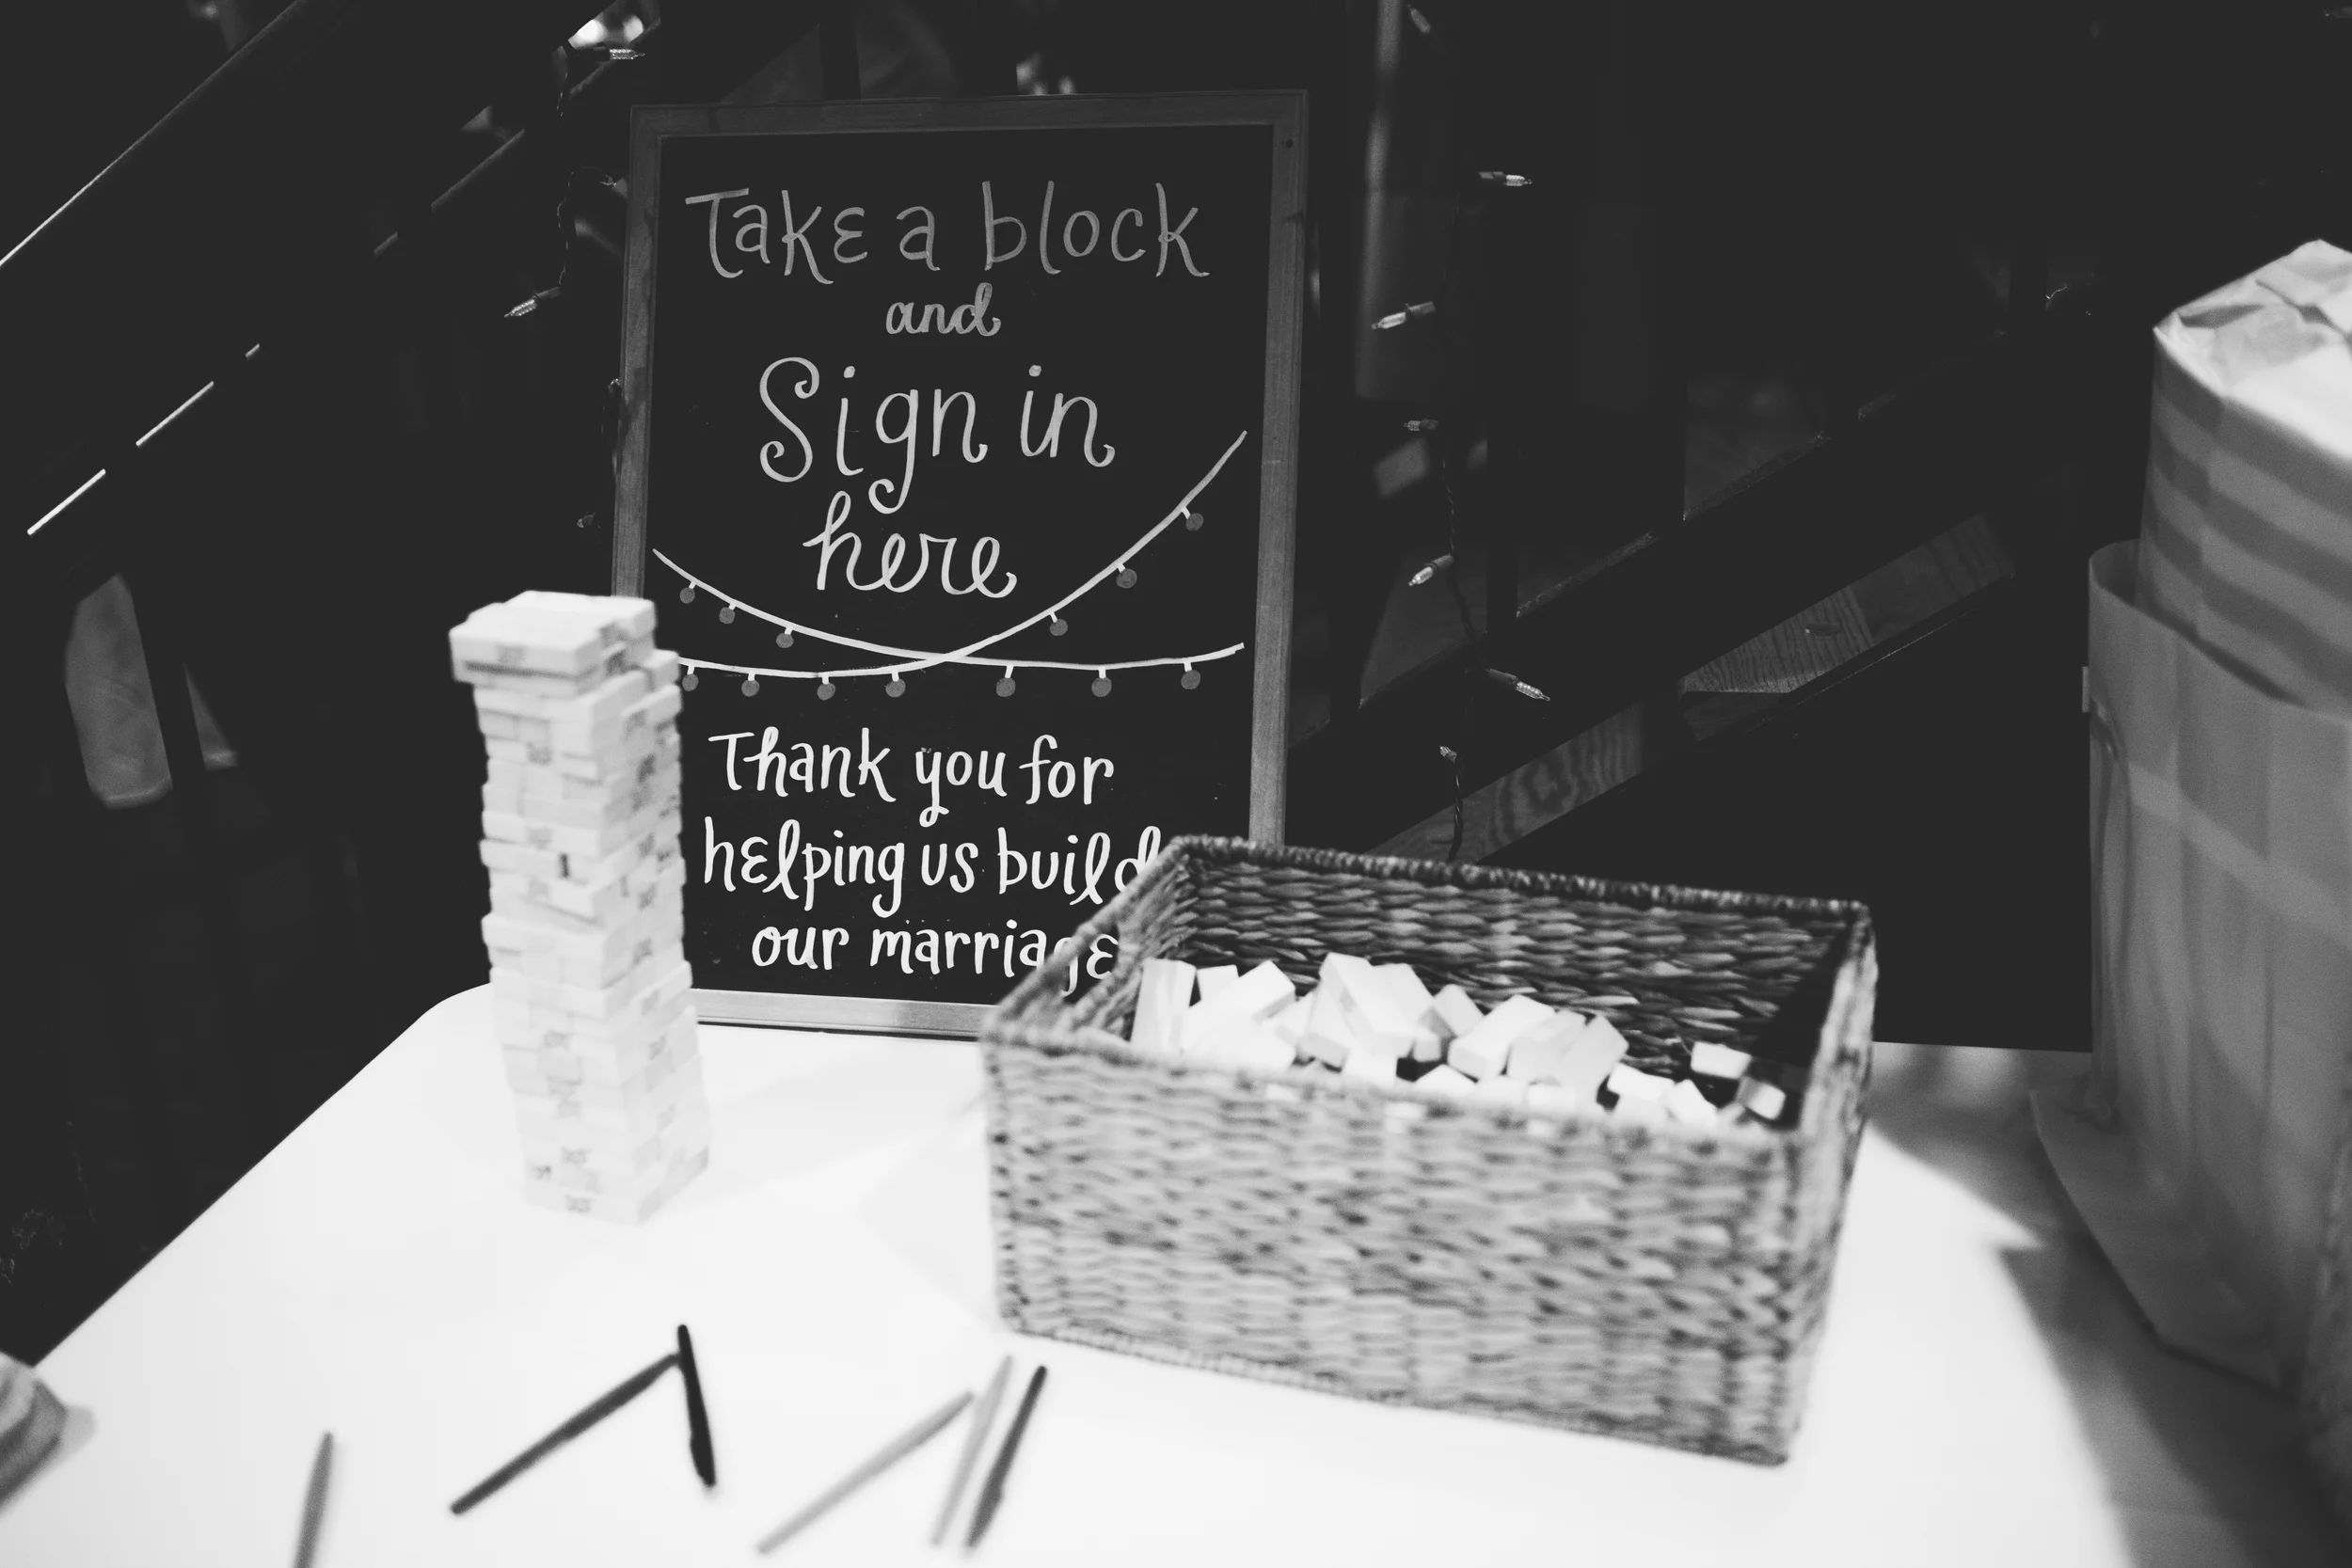 Take a block
and
Sign in
here
Thank you for
helping us build
our marriage